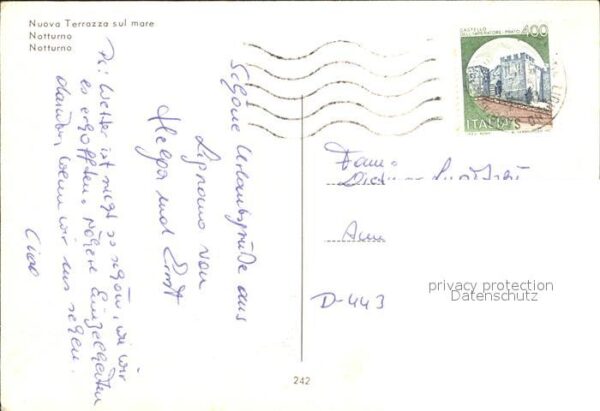 Nuova Terrazza sul mare
Notturno
Notturno
CASTELLO
DELL'IMPERATORE - PRATO
400
ITALIA
Schöne Urlaubsgrüße aus
Lignano von
Helga und Ernst
Ps: Wetter ist nicht so schön, wie wir
es erhofften. Nähere Einzelheiten
dann, wenn wir uns sehen.
Ciao
Fam.
D-443
privacy protection
Datenschutz
242